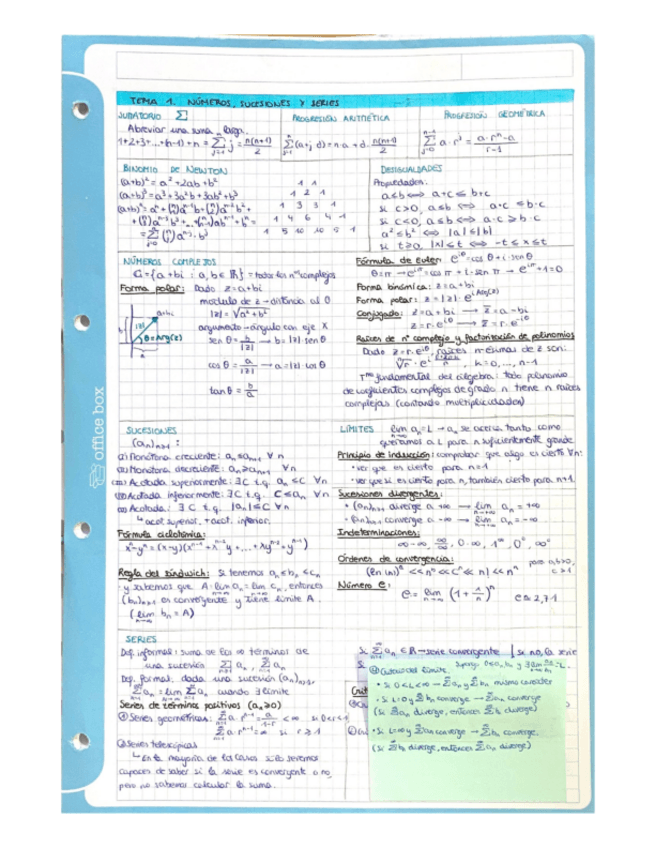 TEMA 1. NÚMEROS, SUCESIONES Y SERIES
SUMATORIO Σ
Abreviar una suma larga.
1+2+3+...+(n-1)+n = Σ j = n(n+1)/2
PROGRESIÓN ARITMÉTICA
Σ(a+j·d) = n·a + d · n(n+1)/2
PROGRESIÓN GEOMÉTRICA
Σ a·r^j = (a·r^n - a)/(r-1)
BINOMIO DE NEWTON
(a+b)² = a² + 2ab + b²
(a+b)³ = a³ + 3a²b + 3ab² + b³
1 1
1 2 1
1 3 3 1
1 4 6 4 1
1 5 10 10 5 1
DESIGUALDADES
Propiedades:
a≤b ⟺ a+c ≤ b+c
si c>0, a≤b ⟺ a·c ≤ b·c
si c<0, a≤b ⟺ a·c ≥ b·c
a² ≤ b² ⟺ |a| ≤ |b|
si t≥0, |x| ≤ t ⟺ -t ≤ x ≤ t
NÚMEROS COMPLEJOS
C = {a+bi : a,b ∈ R} = todos los nos complejos
Forma polar: Dado z=a+bi
modulo de z → distancia al 0
|z| = √(a²+b²)
argumento → ángulo con eje X
sen θ = b/|z| → b = |z|·sen θ
cos θ = a/|z| → a = |z|·cos θ
tan θ = b/a
a+bi
|z|
θ = Arg(z)
Fórmula de Euler: e^iθ = cos θ + i·sen θ
θ=π → e^iπ = cos π + i·sen π → e^iπ + 1 = 0
Forma binómica: z = a+bi
Forma polar: z = |z|·e^iArg(z)
Conjugado: z = a+bi → z̄ = a-bi
z = r·e^iθ → z̄ = r·e^-iθ
Raíces de nº complejo y factorización de polinomios
Dado z = r·e^iθ, raíces nésimas de z son:
k = 0, ..., n-1
Tma fundamental del álgebra: todo polinomio
de coeficientes complejos de grado n tiene n raíces
complejas (contando multiplicidades)
SUCESIONES
(an)n≥1 :
Monótona creciente: an ≤ an+1 ∀n
Monótona decreciente: an ≥ an+1 ∀n
Acotada superiormente: ∃C t.q. an ≤ C ∀n
Acotada inferiormente: ∃C t.q. C ≤ an ∀n
Acotada: ∃C t.q. |an| ≤ C ∀n
↳ acot. superior. + acot. inferior.
Fórmula ciclotómica:
x^n - y^n = (x-y)(x^n-1 + x^n-2 y + ... + xy^n-2 + y^n-1)
Regla del sándwich: si tenemos an ≤ bn ≤ cn
y sabemos que A = lim an = lim cn, entonces
(bn)n≥1 es convergente y tiene límite A.
(lim bn = A)
LÍMITES
lim an = L → an se acerca tanto como
queramos a L para n suficientemente grande
Principio de inducción: comprobar que algo es cierto ∀n:
• ver que es cierto para n=1
• ver que si es cierto para n, también cierto para n+1.
Sucesiones divergentes:
• (an)n≥1 diverge a +∞ → lim an = +∞
• (an)n≥1 converge a -∞ → lim an = -∞
Indeterminaciones:
∞-∞, ∞/∞, 0·∞, 1^∞, 0^0, ∞^0
Órdenes de convergencia:
(ln n)^a << n^b << c^n << n! << n^n
para a,b>0, c>1
Número e:
e = lim (1 + 1/n)^n e ≈ 2,71
SERIES
Def. informal: suma de los ∞ términos de
una sucesión
Def. formal: dada una sucesión (an)n≥1,
Σ an = lim Σ an cuando ∃ límite
Series de términos positivos (an ≥ 0)
① Series geométricas: Σ a·r^n-1 = a/(1-r) < ∞ si 0<r<1
Σ a·r^n-1 = ∞ si r ≥ 1
② Series telescópicas
↳ En la mayoría de los casos solo seremos
capaces de saber si la serie es convergente o no,
pero no sabremos calcular la suma.
Si Σ an ∈ R → serie convergente | si no, la serie
Crit
④ Criterio del límite.
• Si 0<L<∞ → Σan y Σbn mismo carácter
• Si L=0 y Σbn converge → Σan converge
(si Σan diverge, entonces Σbn diverge)
• Si L=∞ y Σan converge → Σbn converge.
(si Σbn diverge, entonces Σan diverge)
office box